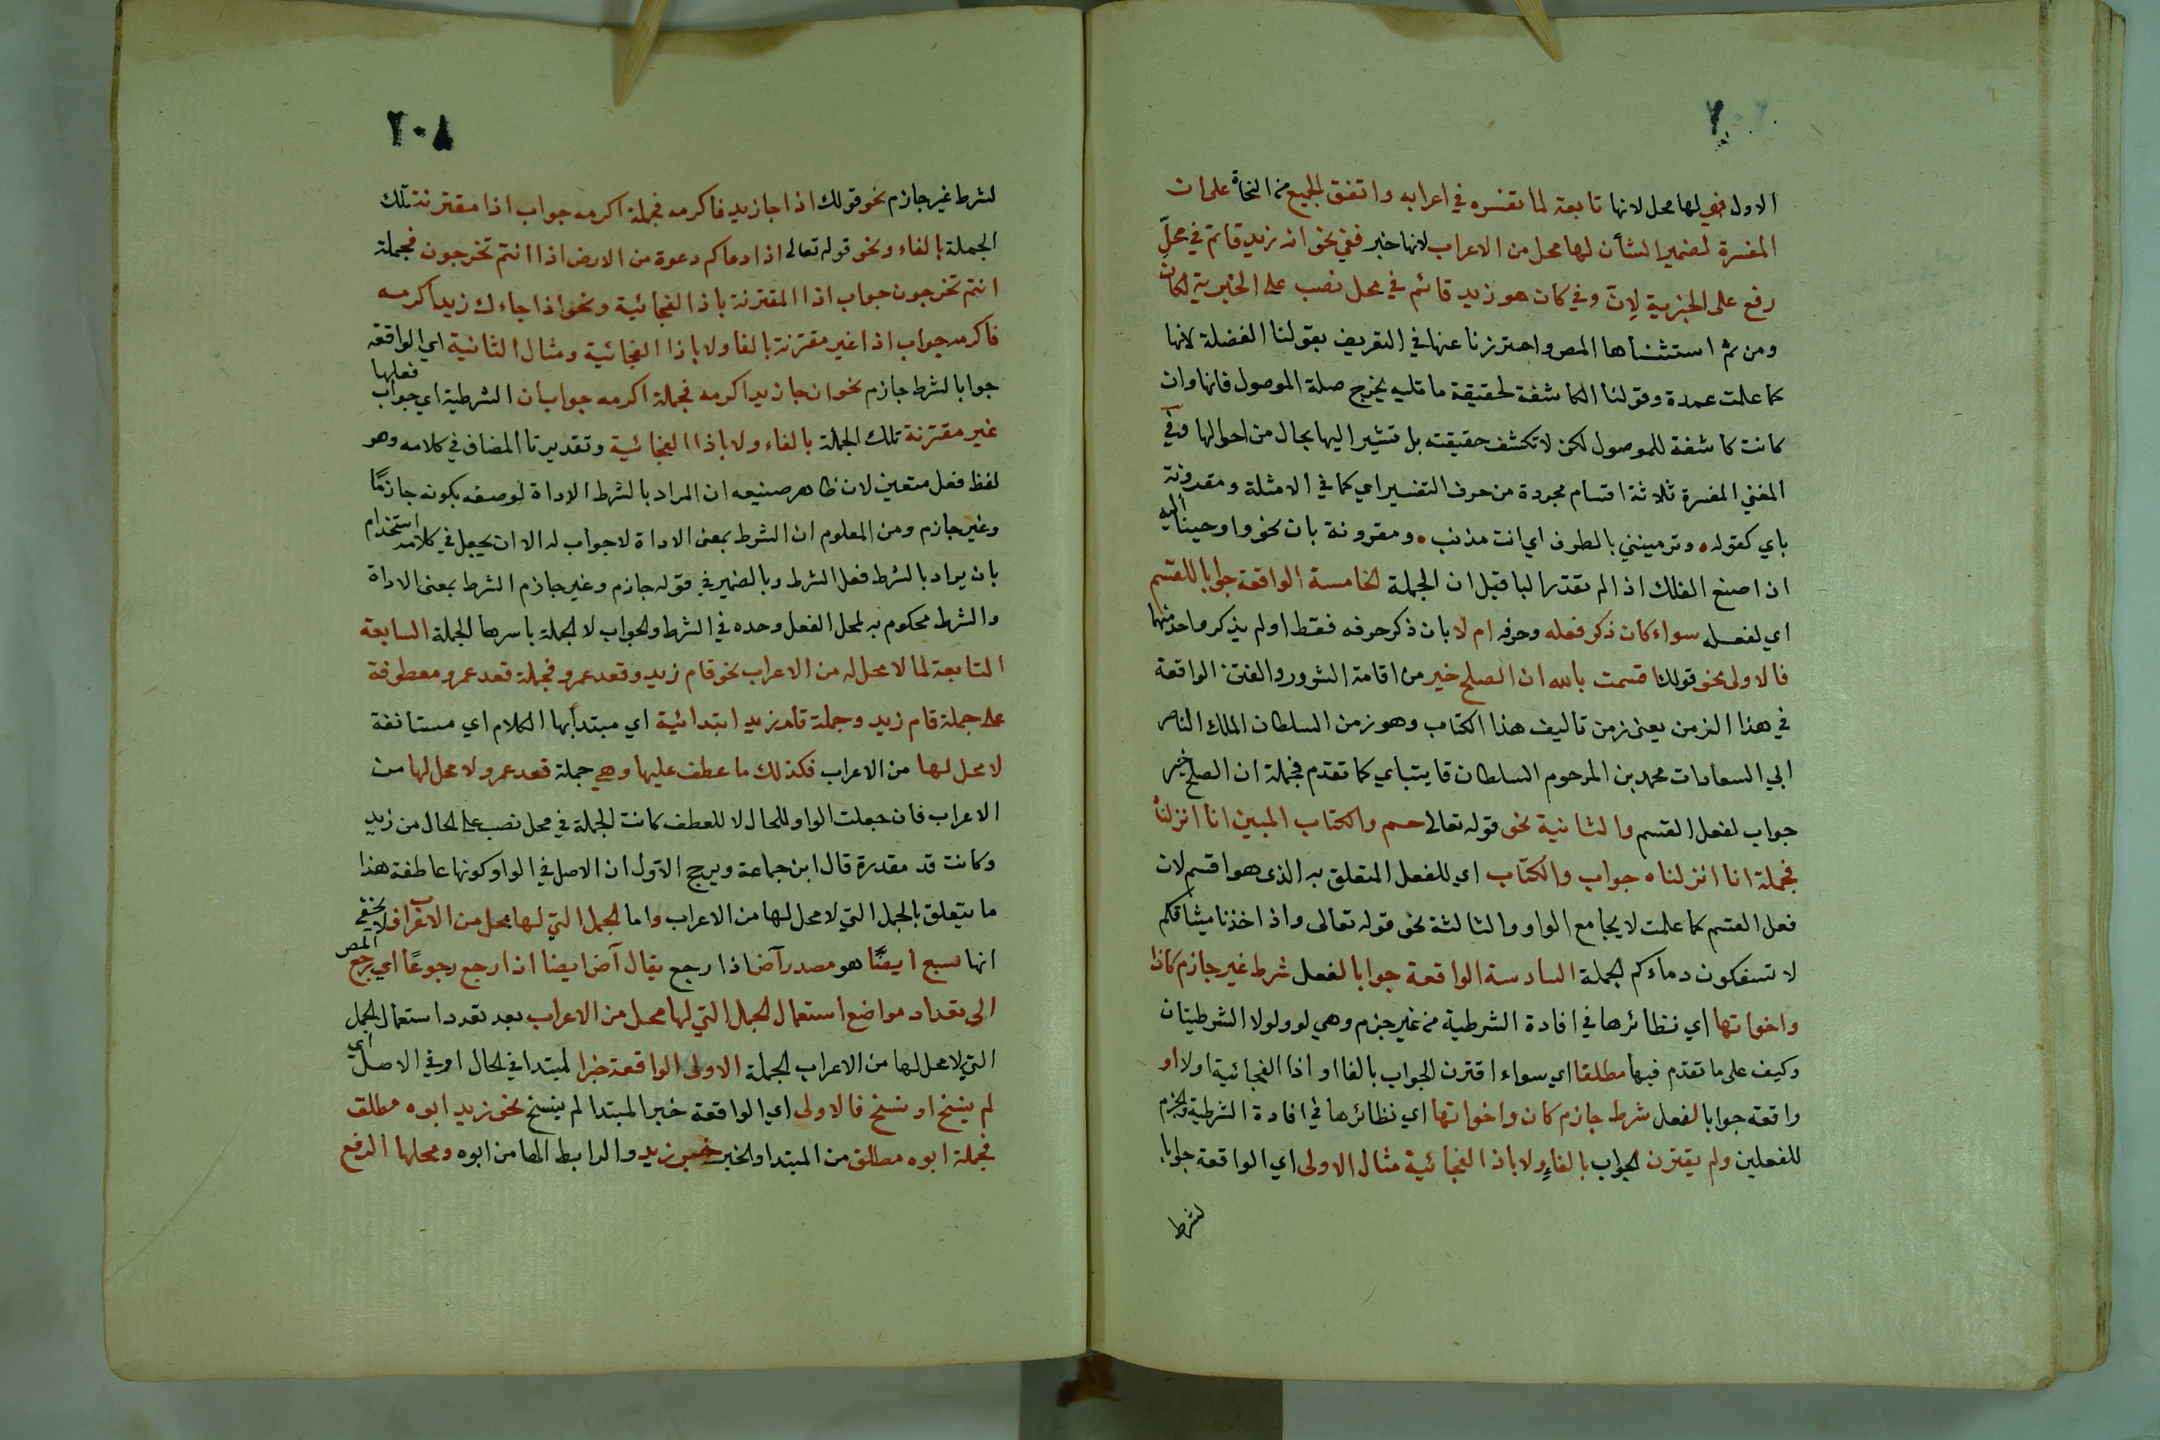 الاول فهي لها محل لانها تابعة لما تفسره في اعرابه واتفق الجميع من النحاة على ان
المفسرة لضمير الشأن لها محل من الاعراب لانها خبر ففي نحو انه زيد قائم في محل
رفع على الخبرية لانّ وفي كان هو زيد قائم في محل نصب على الخبرية لكان
ومن ثم استثناها المص واحترزنا عنها في التعريف بقولنا الفضلة لانها
كما علمت عمدة وقولنا الكاشفة لحقيقة ما تليه يخرج صلة الموصول فانها وان
كانت كاشفة للموصول لكن لا تكشف حقيقته بل تشير اليها بحال من احوالها وفي
المغني المفسرة ثلاثة اقسام مجردة من حرف التفسير اي كما في الامثلة ومقرونة
باي كقوله وترمينني بالطرف اي انت مذنب ومقرونة بان نحو واوحينا اليه
ان اصنع الفلك اذا لم تقدر الباء قبل ان الجملة الخامسة الواقعة جوابا للقسم
اي لفعله سواء كان ذكر فعله وحرفه ام لا بان ذكر حرفه فقط او لم يذكر واحد منهما
فالاولى نحو قولك اقسمت بالله ان الصلح خير من اقامة الشرور والفتن الواقعة
في هذا الزمن يعنى زمن تاليف هذا الكتاب وهو زمن السلطان الملك الناصر
ابي السعادات محمد بن المرحوم السلطان قايتباي كما تقدم فجملة ان الصلح خير
جواب لفعل القسم والثانية نحو قوله تعالى حم والكتاب المبين انا انزلناه
فجملة انا انزلناه جواب والكتاب اي للفعل المتعلق به الذى هو اقسم لان
فعل القسم كما علمت لا يجامع الواو والثالثة نحو قوله تعالى واذ اخذنا ميثاقكم
لا تسفكون دماءكم الجملة السادسة الواقعة جوابا لفعل شرط غير جازم كاذا
واخواتها اي نظائرها في افادة الشرطية من غير جزم وهي لو ولولا الشرطيتان
وكيف على ما تقدم فيها مطلقا اي سواء اقترن الجواب بالفا او اذا الفجائية اولا او
واقعة جوابا لفعل شرط جازم كان واخواتها اي نظائرها في افادة الشرطية والجزم
للفعلين ولم يقترن الجواب بالفاء ولا باذا الفجائية مثال الاولى اي الواقعة جوابا
لشرط
٢٠٨
لشرط غير جازم نحو قولك اذا جا زيد فاكرمه فجملة اكرمه جواب اذا مقترنة تلك
الجملة بالفاء ونحو قوله تعالى اذا دعاكم دعوة من الارض اذا انتم تخرجون فجملة
انتم تخرجون جواب اذا المقترنة باذا الفجائية ونحو اذا جاءك زيد اكرمه
فاكرمه جواب اذا غير مقترنة بالفا ولا باذا الفجائية ومثال الثانية اي الواقعة
جوابا لشرط جازم نحو ان جا زيد اكرمه فجملة اكرمه جواب ان الشرطية اي جواب فعلها
غير مقترنة تلك الجملة بالفاء ولا باذا الفجائية وتقديرنا المضاف في كلامه وهو
لفظ فعل متعين لان ظاهر صنيعه ان المراد بالشرط الاداة لوصفه بكونه جازمًا
وغير جازم ومن المعلوم ان الشرط بمعنى الاداة لا جواب له الا ان يجعل في كلامه استخدام
بان يراد بالشرط فعل الشرط وبالضمير في قوله جازم وغير جازم الشرط بمعنى الاداة
والشرط محكوم به لمحل الفعل وحده في الشرط والجواب لا الجملة باسرها الجملة السابعة
التابعة لما لا محل له من الاعراب نحو قام زيد وقعد عمرو فجملة قعد عمرو معطوفة
على جملة قام زيد وجملة قام زيد ابتدائية اي مبتدأ بها الكلام اي مستانفة
لا محل لها من الاعراب فكذلك ما عطف عليها وهي جملة قعد عمرو لا محل لها من
الاعراب فان جعلت الواو للحال لا للعطف كانت الجملة في محل نصب على الحال من زيد
وكانت قد مقدرة قال ابن جماعة ويرجح الاول ان الاصل في الواو كونها عاطفة هذا
ما يتعلق بالجمل التي لا محل لها من الاعراب واما الجمل التي لها محل من الاعراب فلا يخفى
انها سبع ايضًا هو مصدر آض اذا رجع يقال آض ايضا اذا رجع رجوعًا اي رجع المص
الى تعداد مواضع استعمال الجمل التي لها محل من الاعراب بعد تعدد استعمال الجمل
التي لا محل لها من الاعراب الجملة الاولى الواقعة خبرا لمبتدا في الحال او في الاصل اي
لم ينسخ او نسخ فالاولى اي الواقعة خبر المبتدا لم ينسخ نحو زيد ابوه مطلق
فجملة ابوه مطلق من المبتدا والخبر خبر زيد والرابط الها من ابوه ومحلها الرفع